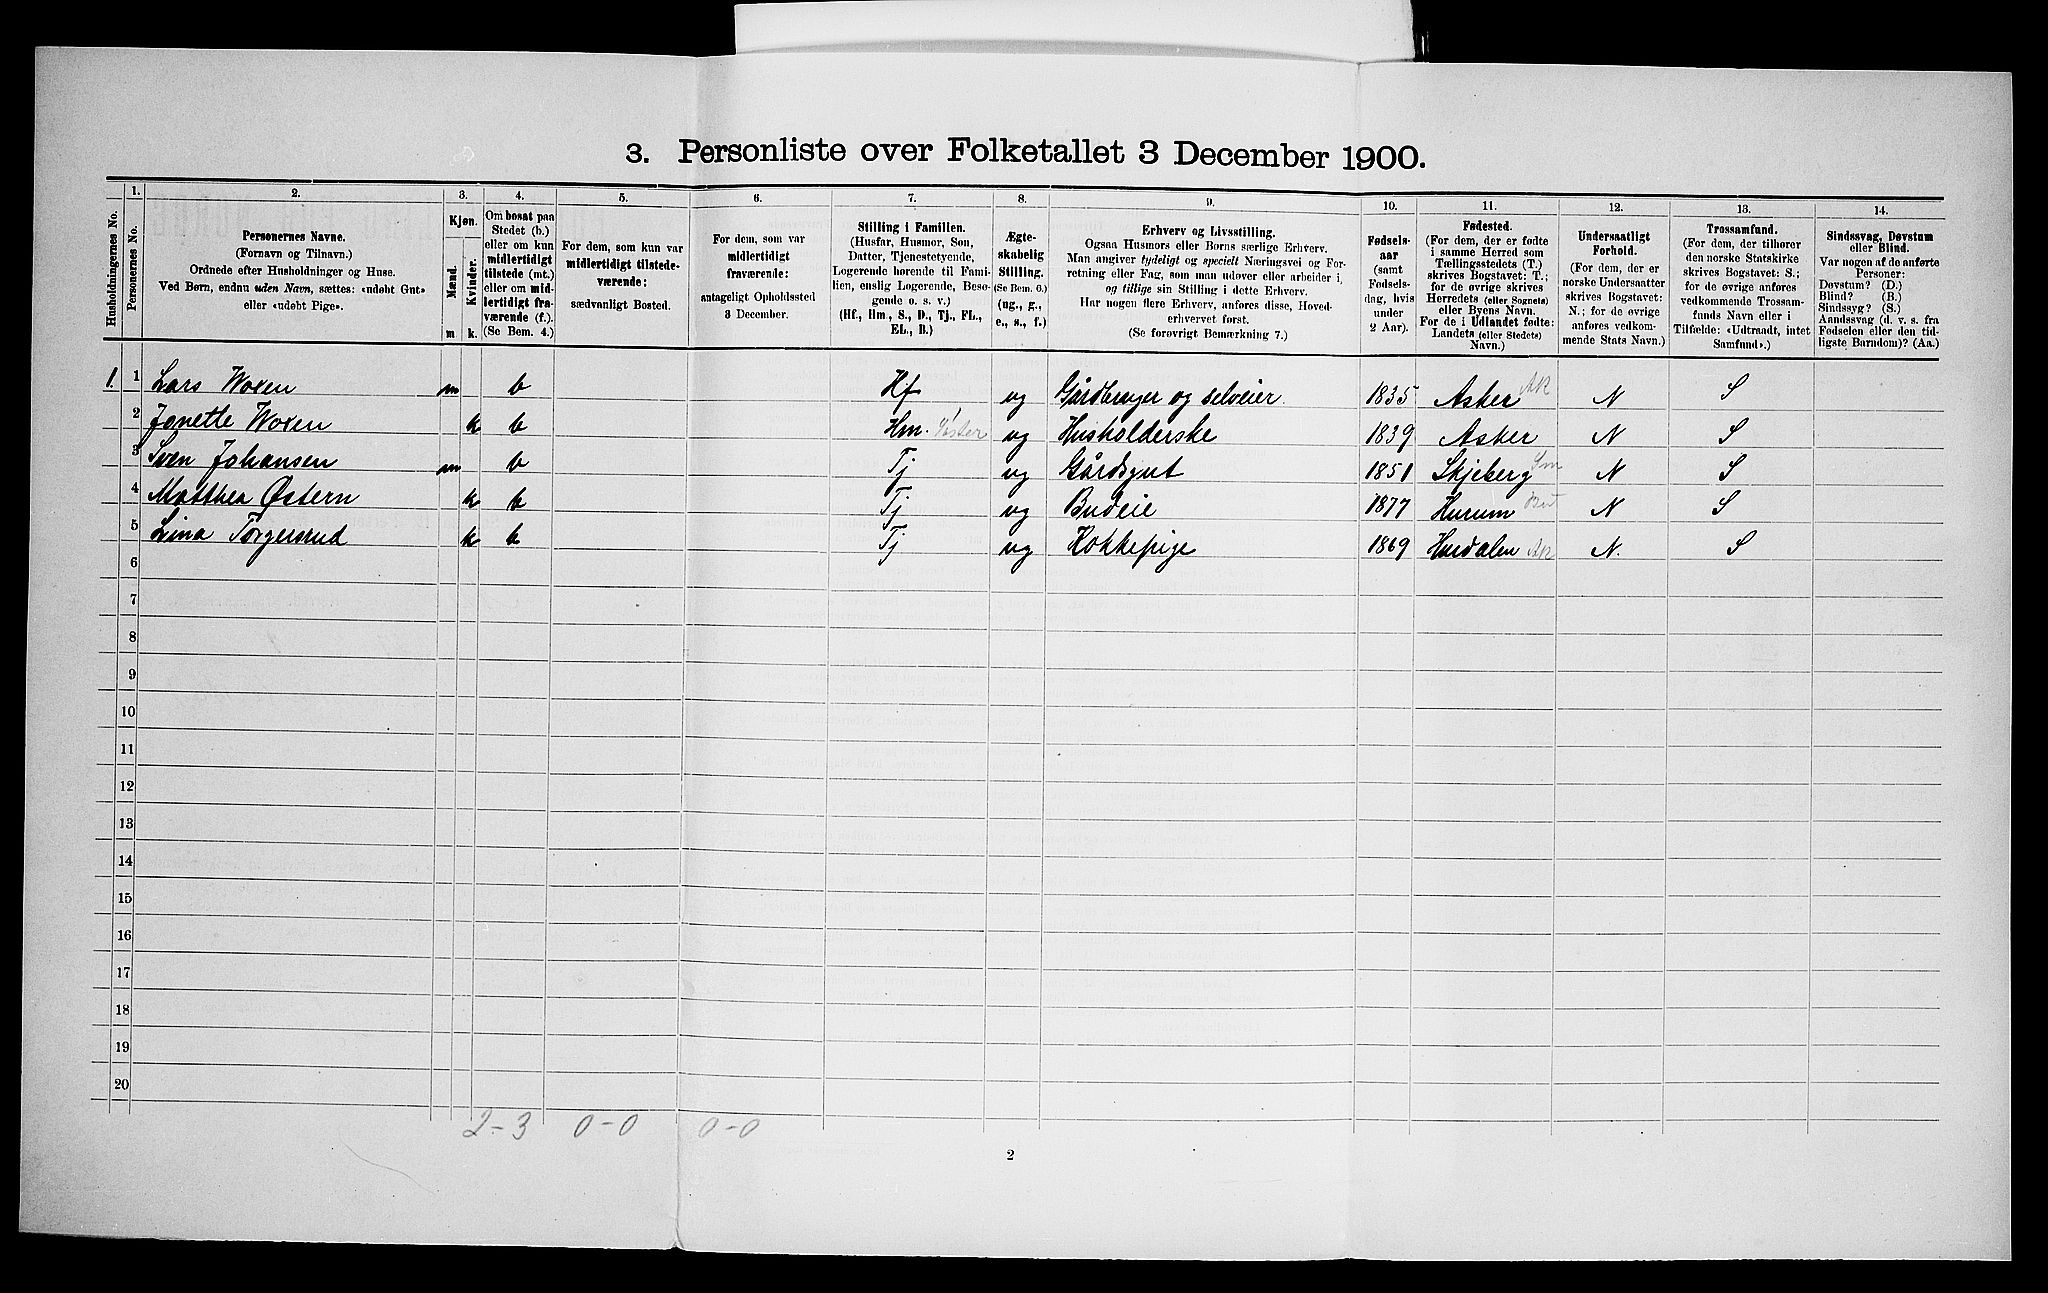 3. Personliste over Folketallet 3 December 1900.
Husholdningernes No.
1.
Personernes No.
2.
Personernes Navne.
(Fornavn og Tilnavn.)
Ordnede efter Husholdninger og Huse.
Ved Børn, endnu uden Navn, sættes: «udøbt Gut»
eller «udøbt Pige».
3.
Kjøn.
Mænd.
Kvinder.
m
k.
4.
Om bosat paa
Stedet (b.)
eller om kun
midlertidigt
tilstede (mt.)
eller om mid-
lertidigt fra-
værende (f.).
(Se Bem. 4.)
5.
For dem, som kun var
midlertidigt tilstede-
værende:
sædvanligt Bosted.
6.
For dem, som var
midlertidigt
fraværende:
antageligt Opholdssted
3 December.
7.
Stilling i Familien.
(Husfar, Husmor, Søn,
Datter, Tjenestetyende,
Logerende hørende til Fami-
lien, enslig Logerende, Besø-
gende o. s. v.)
(Hf., Hm., S., D., Tj., FL.,
EL., B.)
8.
Ægte-
skabelig
Stilling.
(Se Bem. 6.)
(ug., g.,
e., s., f.)
9.
Erhverv og Livsstilling.
Ogsaa Husmors eller Børns særlige Erhverv.
Man angiver tydeligt og specielt Næringsvei og For-
retning eller Fag, som man udøver eller arbeider i,
og tillige sin Stilling i dette Erhverv.
Har nogen flere Erhverv, anføres disse, Hoved-
erhvervet først.
(Se forøvrigt Bemærkning 7.)
10.
Fødsels-
aar
(samt
Fødsels-
dag, hvis
under
2 Aar).
11.
Fødested.
(For dem, der er fødte
i samme Herred som
Tællingsstedets (T.)
skrives Bogstavet: T.;
for de øvrige skrives
Herredets (eller Sognets)
eller Byens Navn.
For de i Udlandet fødte:
Landets (eller Stedets)
Navn.)
12.
Undersaatligt
Forhold.
(For dem, der er
norske Undersaatter
skrives Bogstavet:
N.; for de øvrige
anføres vedkom-
mende Stats Navn.)
13.
Trossamfund.
(For dem, der tilhører
den norske Statskirke
skrives Bogstavet: S.;
for de øvrige anføres
vedkommende Trossam-
funds Navn eller i
Tilfælde: «Udtraadt, intet
Samfund».)
14.
Sindssvag, Døvstum
eller Blind.
Var nogen af de anførte
Personer:
Døvstum? (D.)
Blind? (B.)
Sindssyg? (S.)
Aandssvag (d. v. s. fra
Fødselen eller den tid-
ligste Barndom)? (Aa.)
1. 1 Lars Woxen m b Hf ug Gårdbruger og selveier. 1835 Asker AK N S
2 Janette Woxen k b Hm. Søster ug Husholderske 1839 Asker N S
3 Sven Johansen m b Tj ug Gårdsgut 1851 Skjeberg Sm N S
4 Matthea Østern k b Tj ug Budeie 1877 Hurum Bu N S
5 Lina Torgersrud k b Tj ug Kokkepige 1869 Hurdalen AK N. S
6
7
8
9
10
11
12
13
14
15
16
17
18
19
20
2-3 0-0 0-0
2